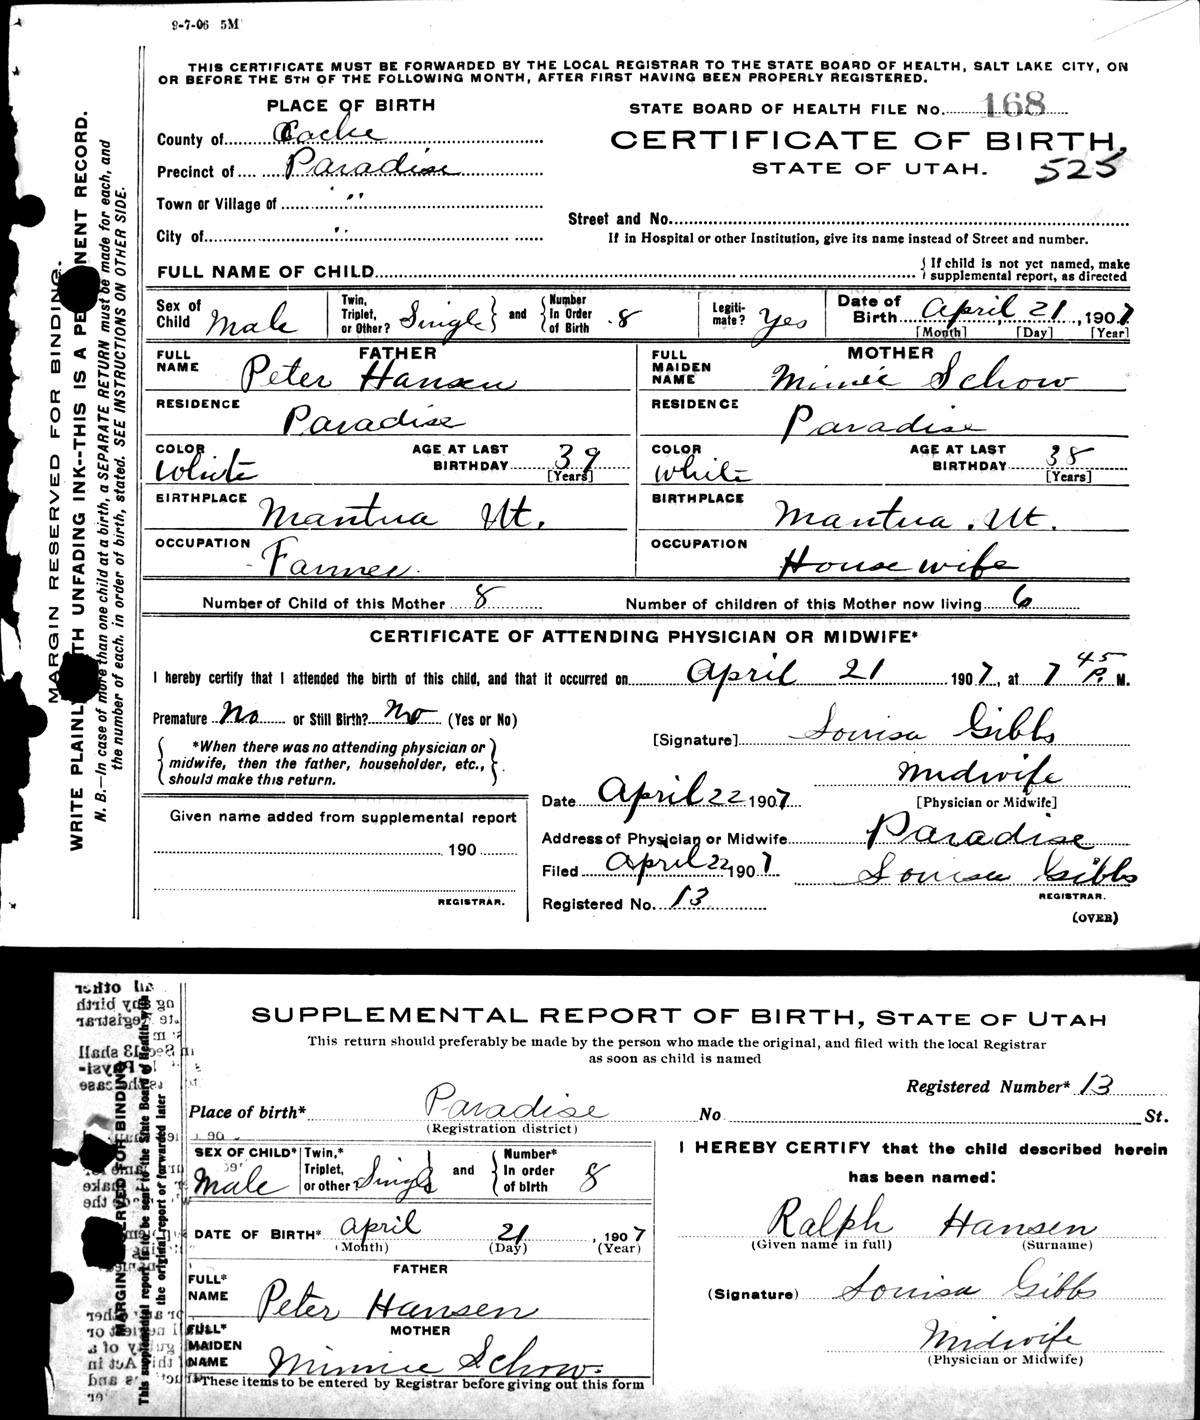 9-7-06 5M
THIS CERTIFICATE MUST BE FORWARDED BY THE LOCAL REGISTRAR TO THE STATE BOARD OF HEALTH, SALT LAKE CITY, ON
OR BEFORE THE 5TH OF THE FOLLOWING MONTH, AFTER FIRST HAVING BEEN PROPERLY REGISTERED.
PLACE OF BIRTH
County of Cache
Precinct of Paradise
Town or Village of "
City of "
STATE BOARD OF HEALTH FILE No. 168
CERTIFICATE OF BIRTH,
STATE OF UTAH. 525
Street and No.
If in Hospital or other Institution, give its name instead of Street and number.
FULL NAME OF CHILD { If child is not yet named, make supplemental report, as directed
Sex of Child Male
Twin, Triplet, or Other? Single } and { Number In Order of Birth 8
Legiti-mate? Yes
Date of Birth April 21, 1907
[Month] [Day] [Year]
FATHER
FULL NAME Peter Hansen
RESIDENCE Paradise
COLOR White AGE AT LAST BIRTHDAY 39 [Years]
BIRTHPLACE Mantua Ut.
OCCUPATION Farmer.
MOTHER
FULL MAIDEN NAME Minnie Schow
RESIDENCE Paradise
COLOR White AGE AT LAST BIRTHDAY 38 [Years]
BIRTHPLACE Mantua. Ut.
OCCUPATION House wife
Number of Child of this Mother 8 Number of children of this Mother now living 6
CERTIFICATE OF ATTENDING PHYSICIAN OR MIDWIFE*
I hereby certify that I attended the birth of this child, and that it occurred on April 21 1907, at 7 45 P. M.
Premature No or Still Birth? No (Yes or No)
{ *When there was no attending physician or
midwife, then the father, householder, etc.,
should make this return. }
[Signature] Louisa Gibbs
Midwife
[Physician or Midwife]
Date April 22 1907
Given name added from supplemental report
190
REGISTRAR.
Address of Physician or Midwife Paradise
Filed April 22 1907 Louisa Gibbs
REGISTRAR.
Registered No. 13
(OVER)
MARGIN RESERVED FOR BINDING.
WRITE PLAINLY WITH UNFADING INK--THIS IS A PERMANENT RECORD.
N. B.—In case of more than one child at a birth, a SEPARATE RETURN must be made for each, and
the number of each, in order of birth, stated. SEE INSTRUCTIONS ON OTHER SIDE.
SUPPLEMENTAL REPORT OF BIRTH, STATE OF UTAH
This return should preferably be made by the person who made the original, and filed with the local Registrar
as soon as child is named
Registered Number* 13
Place of birth* Paradise No St.
(Registration district)
SEX OF CHILD* Male
Twin,* Triplet, or other? Single } and { Number* In order of birth 8
DATE OF BIRTH* April 21, 1907
(Month) (Day) (Year)
FATHER
FULL* NAME Peter Hansen
MOTHER
FULL* MAIDEN NAME Minnie Schow.
*These items to be entered by Registrar before giving out this form
I HEREBY CERTIFY that the child described herein
has been named:
Ralph Hansen
(Given name in full) (Surname)
(Signature) Louisa Gibbs
Midwife
(Physician or Midwife)